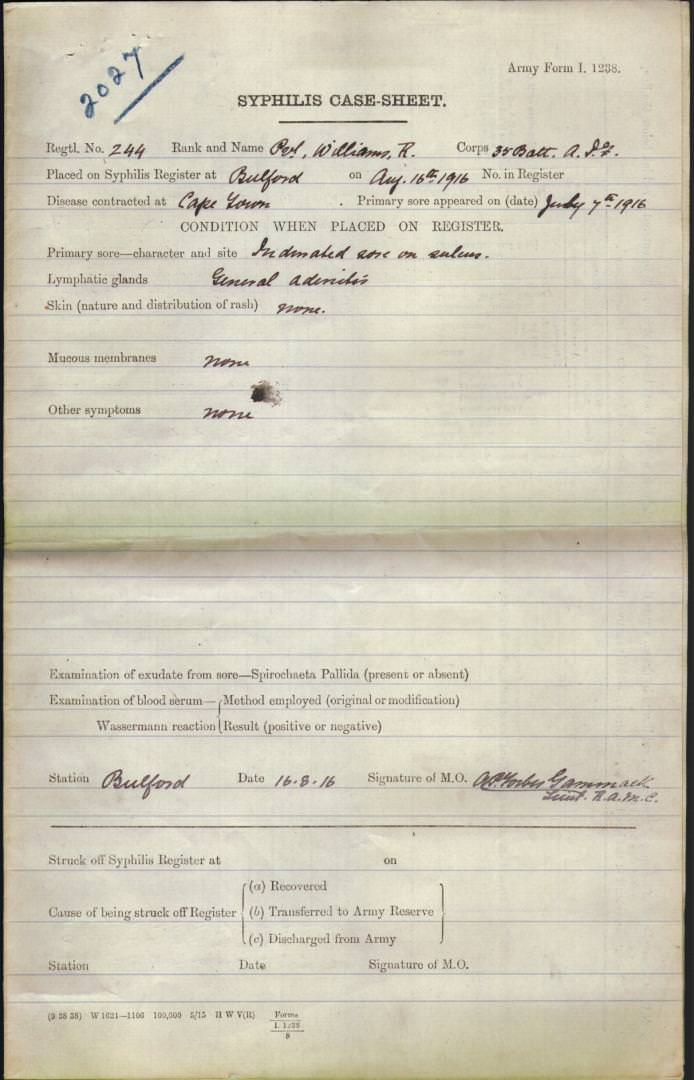 2027
Army Form I. 1238.
SYPHILIS CASE-SHEET.
Regtl. No. 244 Rank and Name Pvt, Williams, R. Corps 35 Batt. A.I.F.
Placed on Syphilis Register at Bulford on Aug. 16th 1916 No. in Register
Disease contracted at Cape Town . Primary sore appeared on (date) July 7th 1916
CONDITION WHEN PLACED ON REGISTER.
Primary sore—character and site Indurated sore on sulcus.
Lymphatic glands General adenitis
Skin (nature and distribution of rash) none.
Mucous membranes none
Other symptoms none
Examination of exudate from sore—Spirochaeta Pallida (present or absent)
Examination of blood serum— Method employed (original or modification)
Wassermann reaction Result (positive or negative)
Station Bulford Date 16.8.16 Signature of M.O. A. Forbes Gammack
Lieut. R.A.M.C.
Struck off Syphilis Register at on
(a) Recovered
Cause of being struck off Register (b) Transferred to Army Reserve
(c) Discharged from Army
Station Date Signature of M.O.
(9 38 38) W 1621—1106 100,000 5/15 H W V(R) Forms
I. 1238
8